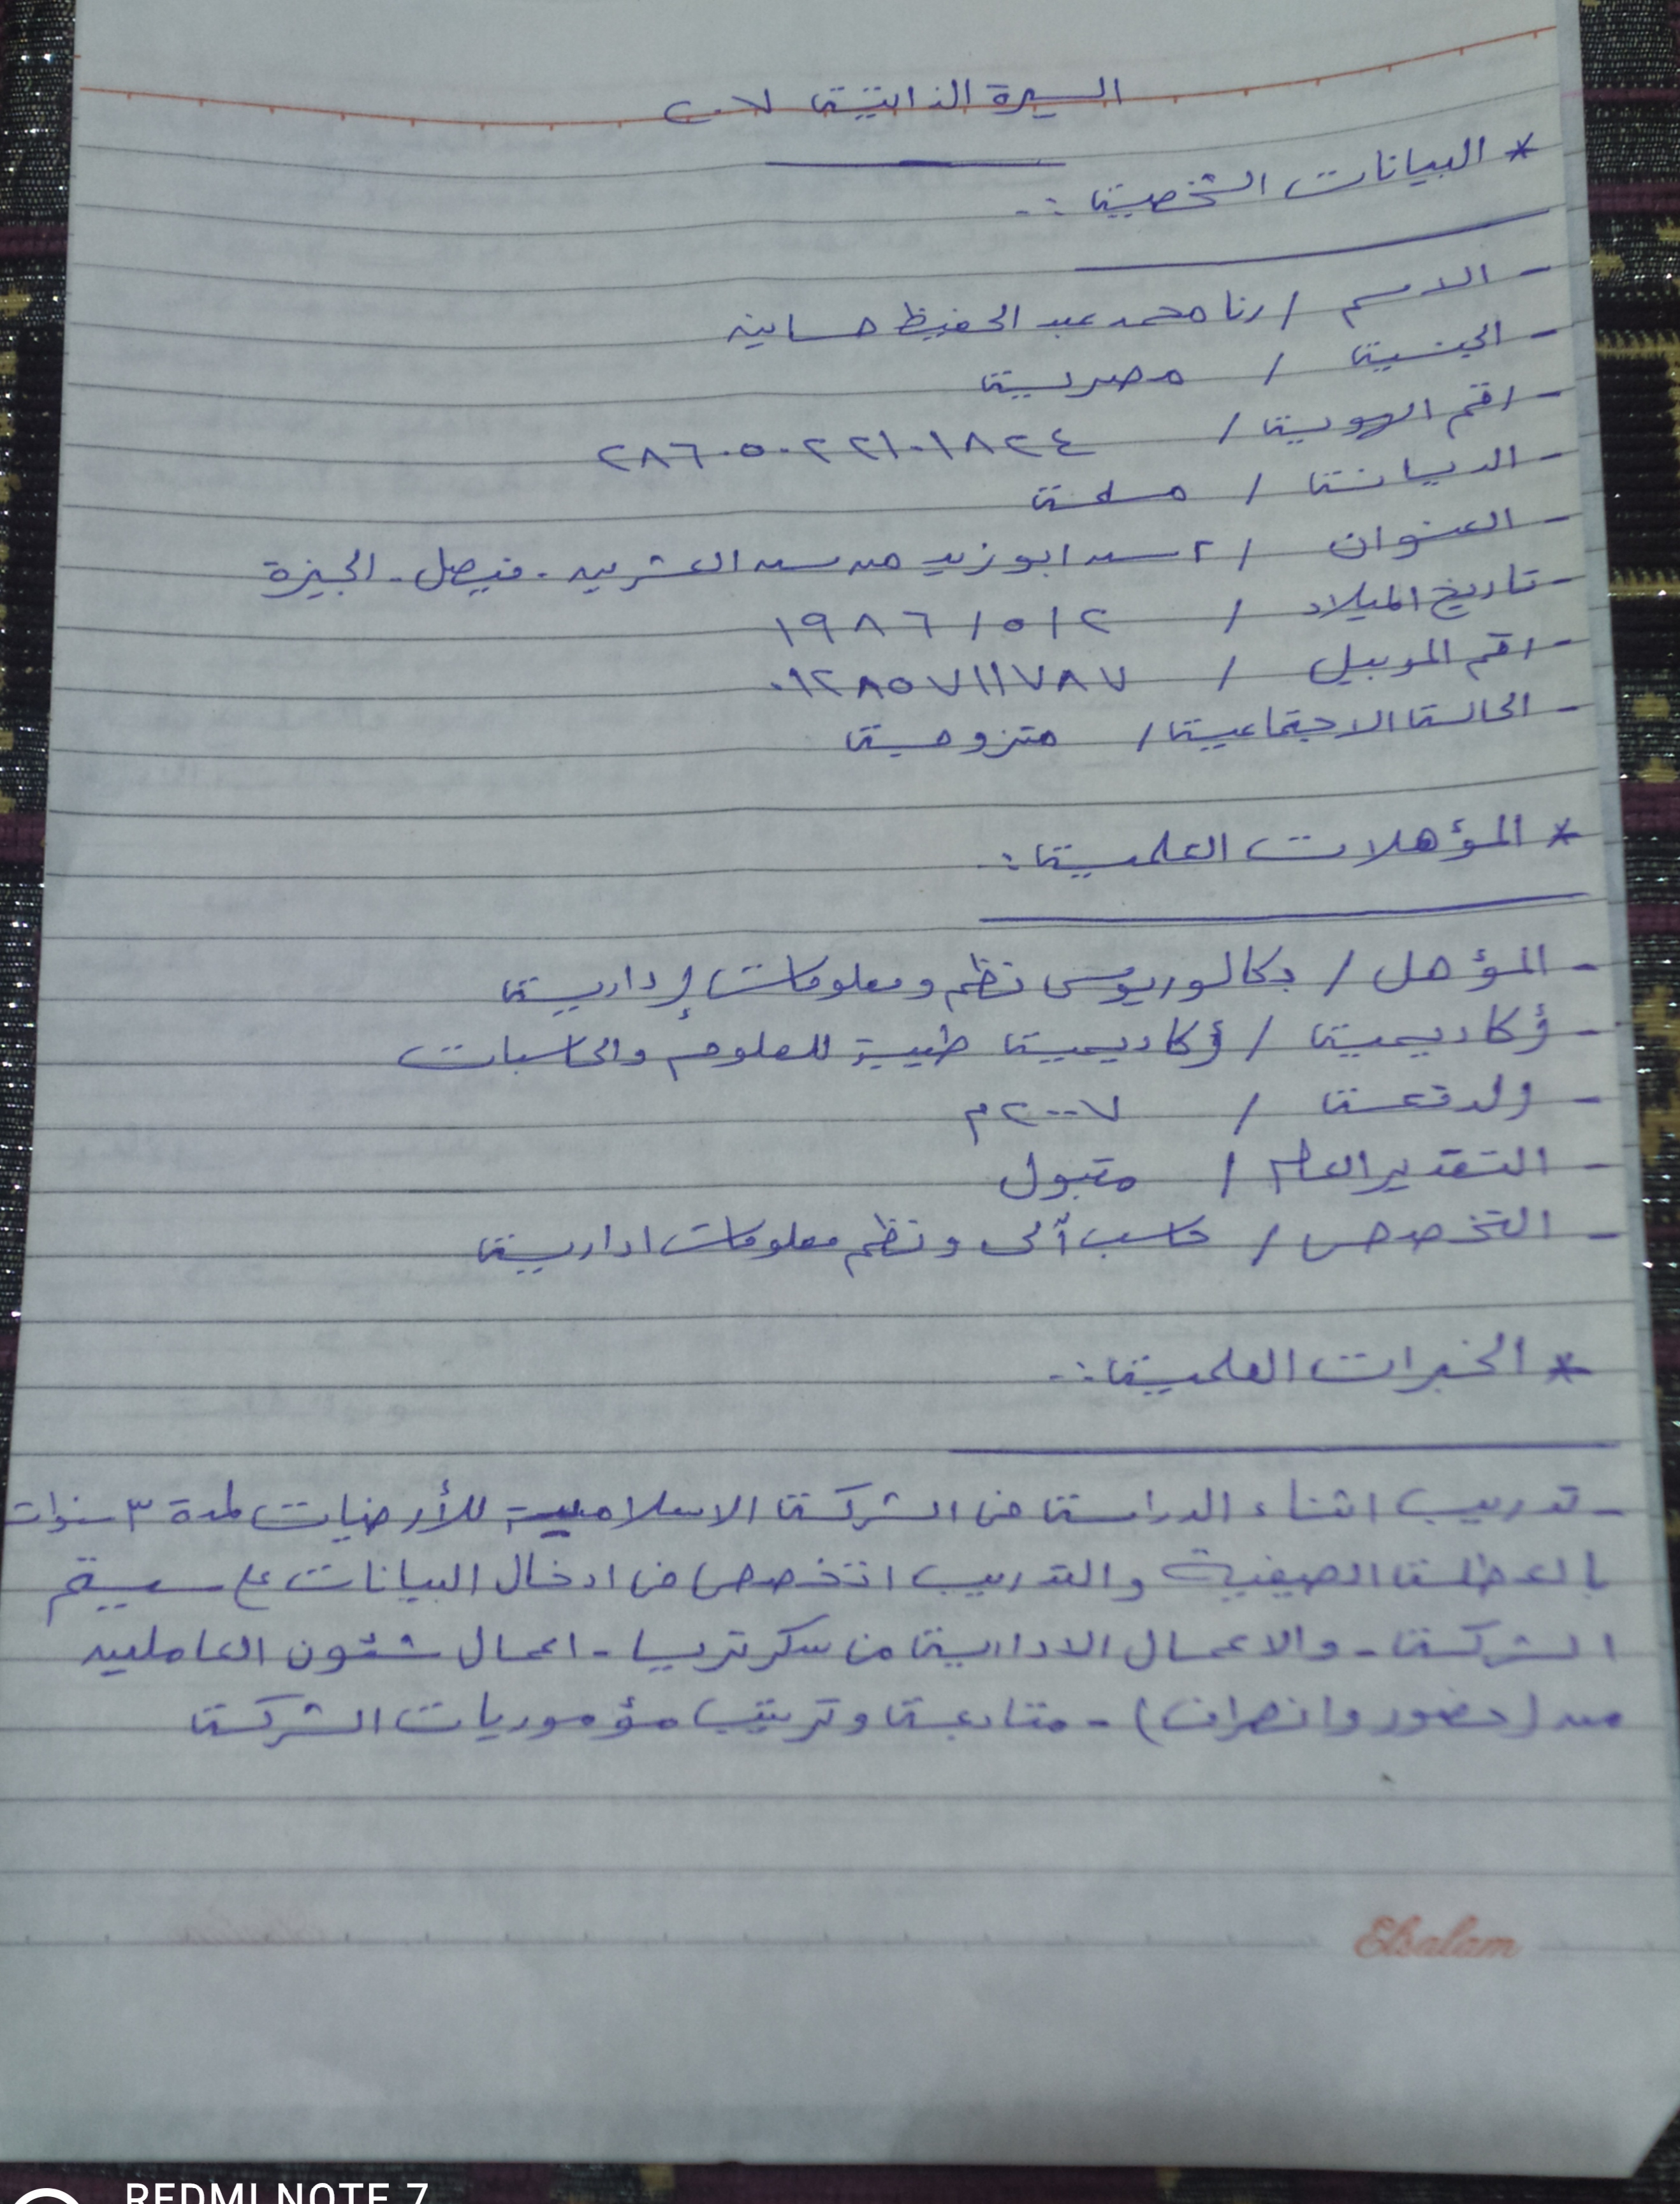 السيرة الذاتية لا..
* البيانات الشخصية :-
- الاسم / رنا محمد عبد الحفيظ حسانين
- الجنسية / مصرية
- رقم الهوية / ٢٨٦٠٥٠٢٢١٠١٨٢٤
- الديانة / مسلمة
- العنوان / ٢ ش ابوزيد من ش العشرين - فيصل - الجيزة
- تاريخ الميلاد / ٢ / ٥ / ١٩٨٦
- رقم الموبيل / ٠١٢٨٥٧١١٧٨٧
- الحالة الاجتماعية / متزوجة
* المؤهلات العلمية :-
- المؤهل / بكالوريوس نظم ومعلومات إدارية
- أكاديمية / أكاديمية طيبة للعلوم والحاسبات
- الدفعة / ٢٠٠٧م
- التقدير العام / مقبول
- التخصص / حاسب آلى ونظم معلومات ادارية
* الخبرات العلمية :-
- تدريب اثناء الدراسة فى الشركة الاسلامية للأرضيات لمدة ٣ سنوات
بالعطلة الصيفية والتدريب اتخصص فى ادخال البيانات ع سيستم
الشركة - والاعمال الادارية من سكرتريا - اعمال شئون العاملين
من (حضور وانصراف) - متابعة وترتيب مؤموريات الشركة
Elsalam
REDMI NOTE 7